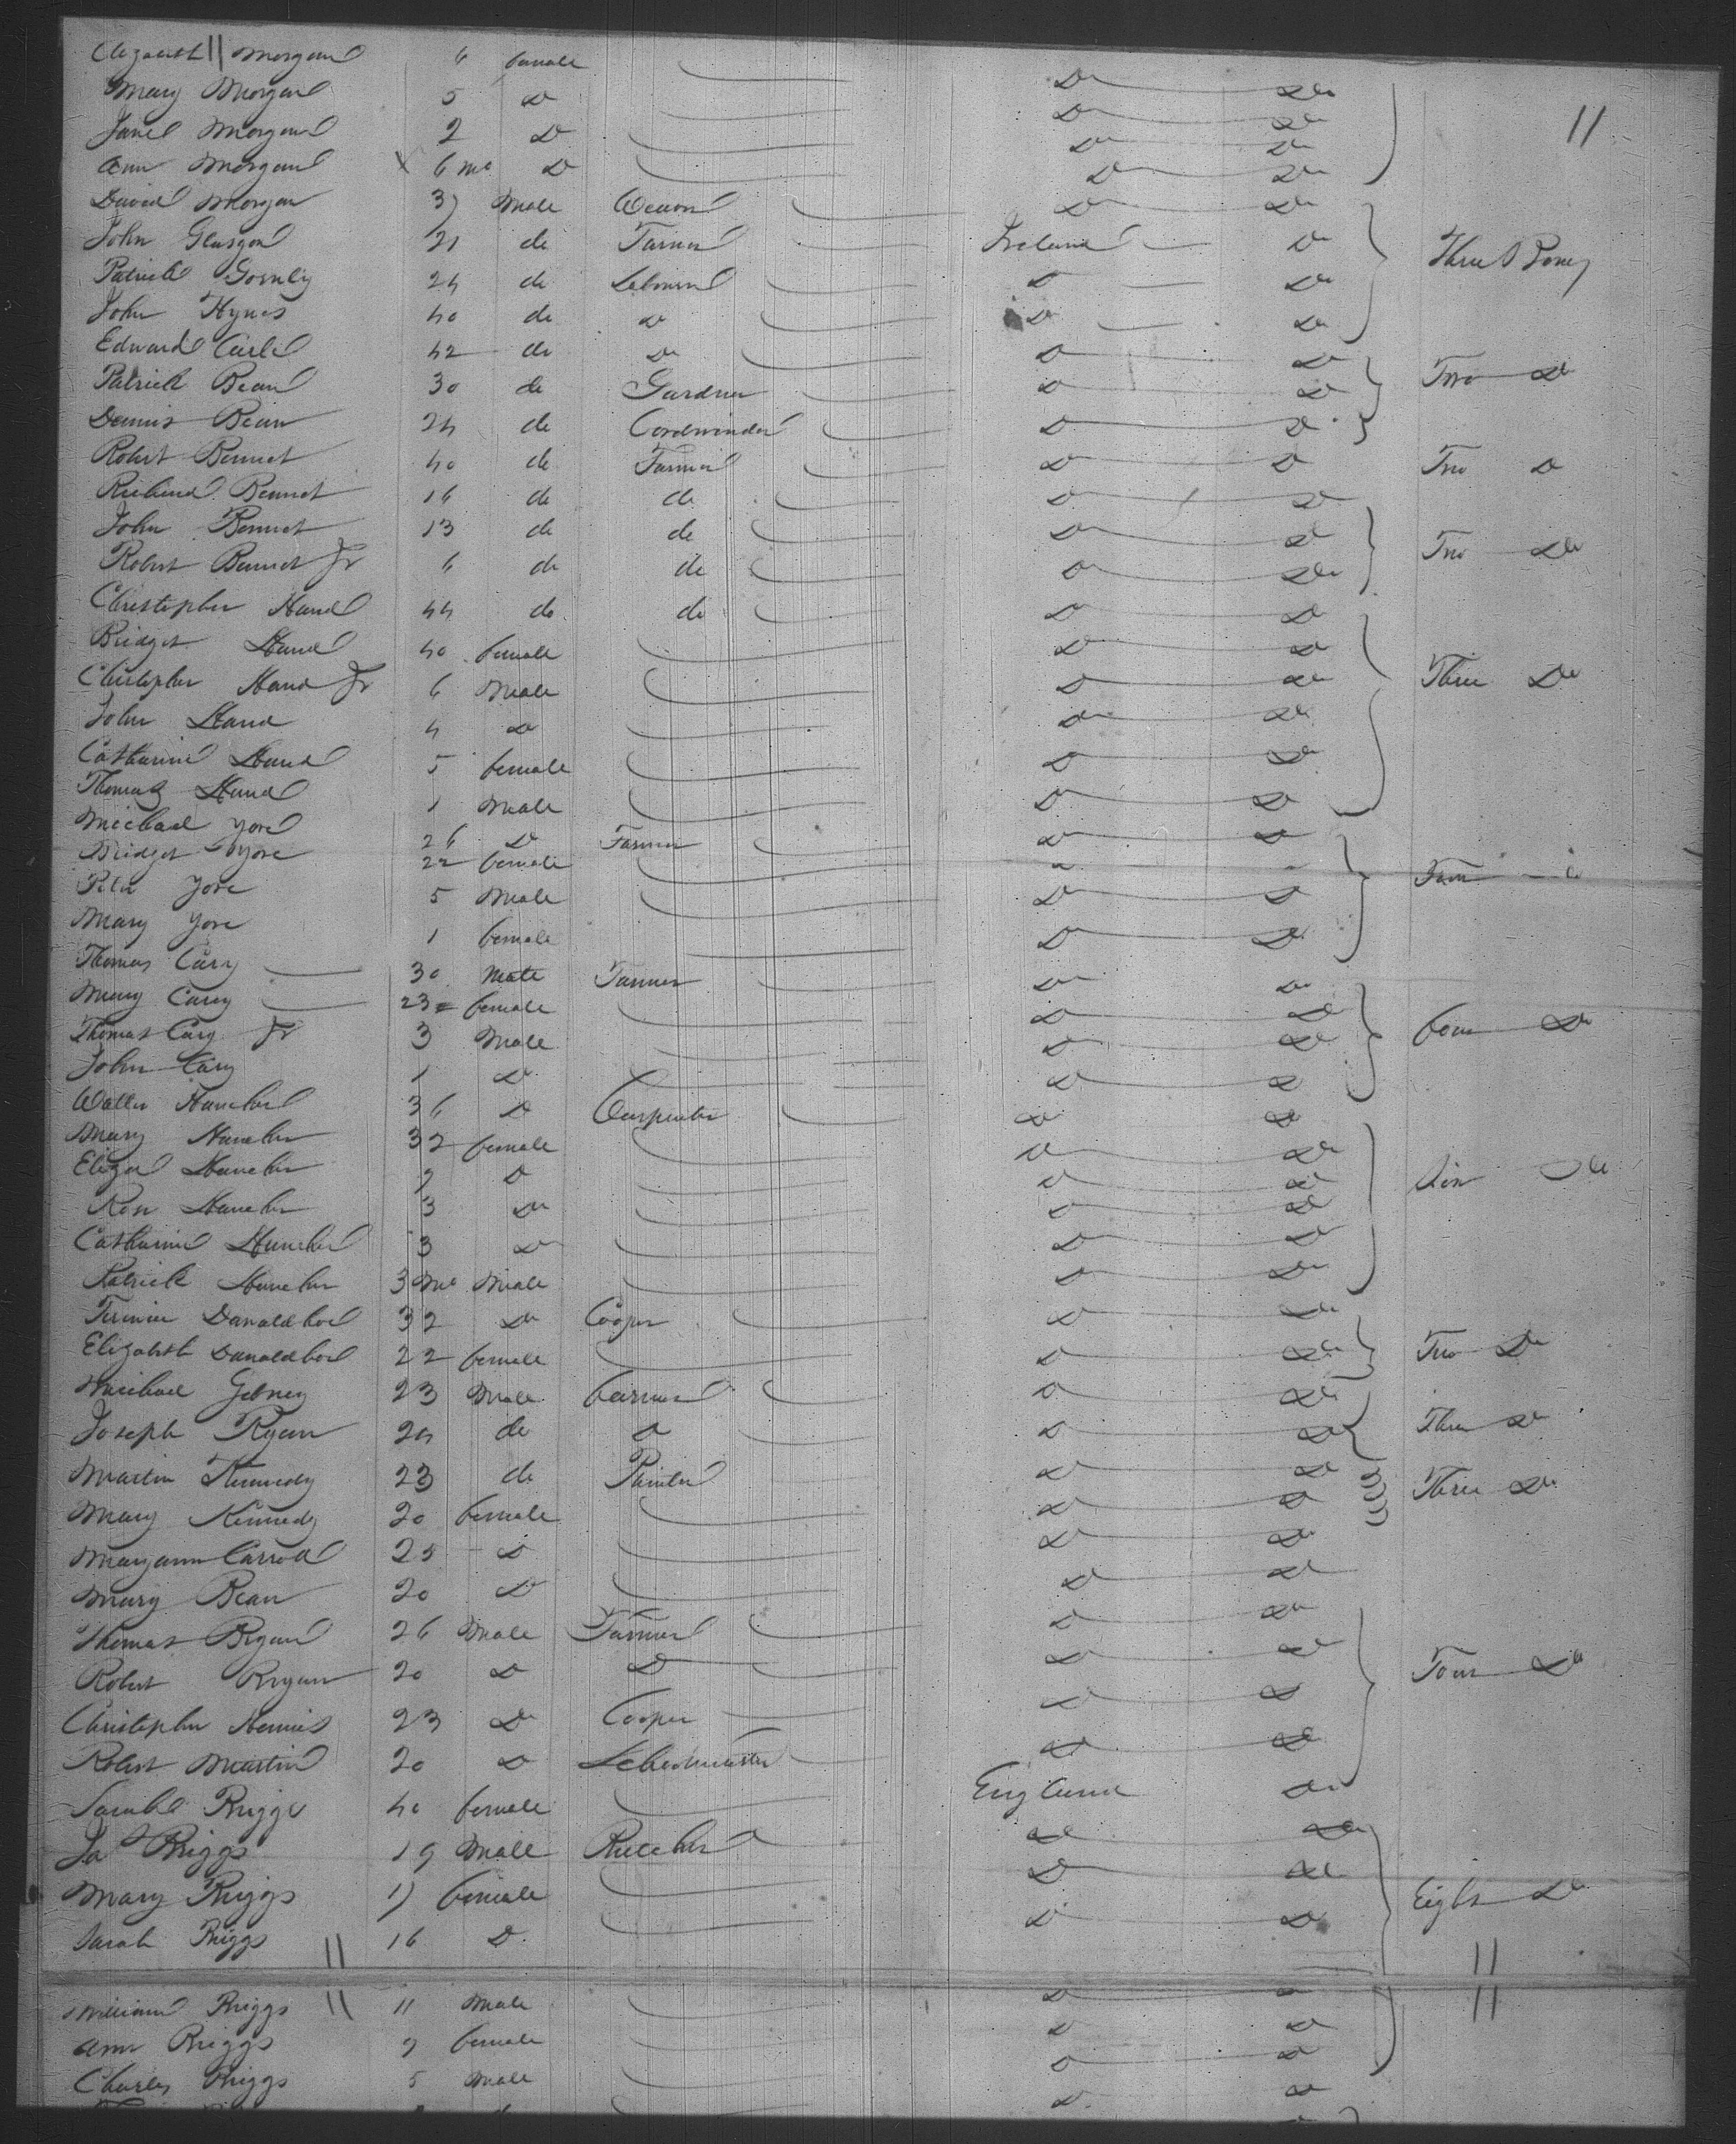 Elizabeth || Morgan 6 female Do Do
Mary Morgan 5 Do Do Do 11
Jane Morgan 2 Do Do Do
Ann Morgan 6 mo Do Do Do
David Morgan 37 Male Do Do
John Glasgon 21 do Farmer Ireland Do Three
Patrick Gornly 24 do Labourer Do Do
John Hynes 40 do Do Do Do
Edward Carle 42 do Do Do Do
Patrick Bean 30 do Gardner Do Do Two Do
Dennis Bean 24 do Cordwinder Do Do
Robert Bennet 40 do Farmer Do Do Two Do
Richard Bennet 16 do do Do Do
John Bennet 13 do do Do Do Two Do
Robert Bennet Jr 6 do do Do Do
Christopher Hand 44 do do Do Do
Bridget Hand 40 female Do Do
Christopher Hand Jr 6 Male Do Do Three Do
John Hand 4 Do Do Do
Catharine Hand 5 female Do Do
Thomas Hand 1 Male Do Do
Michael Yore 26 Do Farmer Do Do
Bridget Yore 22 female
Peter Yore 5 Male Do Do
Mary Yore 1 female Do Do
Thomas Cary 30 Male Farmer Do Do
Mary Carey 23 female Do Do four Do
Thomas Cary Jr 3 Male Do Do
John Cary 1 Do Do Do
Walter 36 Do Carpenter Do Do
Mary 32 female Do Do
Eliza 7 Do Do Do Six Do
Rose 3 Do Do Do
Catharine 3 Do Do Do
Patrick 3 mo Male Do Do
32 Do Cooper Do Do
Elizabeth 22 female Do Do Two Do
Michael Gebney 23 Male farmer Do Do
Joseph Ryan 24 do Do Do Do Three Do
Martin Kennedy 23 do Painter Do Do Three Do
Mary Kennedy 20 female Do Do
Maryann Carroll 25 Do Do Do
Mary Bean 20 Do Do Do
Thomas Bryan 26 Male Farmer Do Do
Robert Bryan 20 Do Do Do Do Four Do
Christopher 23 Do Cooper Do Do
Robert Martin 20 Do Schoolmaster Do Do
Sarah Briggs 40 female England Do
Jas Briggs 19 Male Butcher Do Do
Mary Briggs 17 female Do Do Eight Do
Sarah Briggs || 16 Do Do Do ||
William Briggs || 11 Male Do Do ||
Ann Briggs 9 female Do Do
Charles Briggs 5 Male Do Do